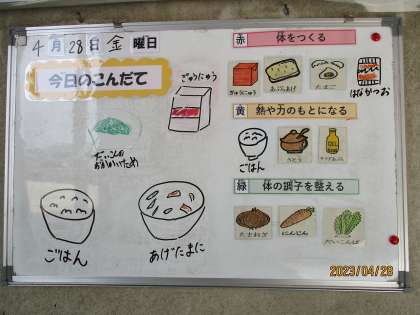 4月28日金曜日
今日のこんだて
ぎゅうにゅう
ごはん
あげたまに
赤 体をつくる
ぎゅうにゅう
あぶらあげ
たまご
はなかつお
黄 熱や力のもとになる
ごはん
さとう
緑 体の調子を整える
たまねぎ
にんじん
だいこんば
2023/04/28